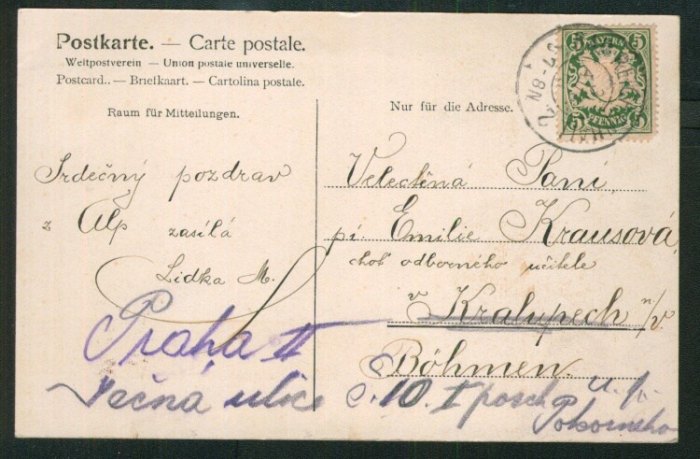 Postkarte. — Carte postale.
Weltpostverein — Union postale universelle.
Postcard.. — Briefkaart. — Cartolina postale.
Raum für Mitteilungen.
Srdečný pozdrav
z Alp zasílá
Lidka M.
Nur für die Adresse.
5 BAYERN 5
5 PFENNIG 5
7-8N
Velectěná Paní
pí. Emilie Krausová,
choť odborného učitele
v Kralupech n/v
Böhmen.
Praha II
Ječná ulice č. 10. I posch. u p.
Pokorného